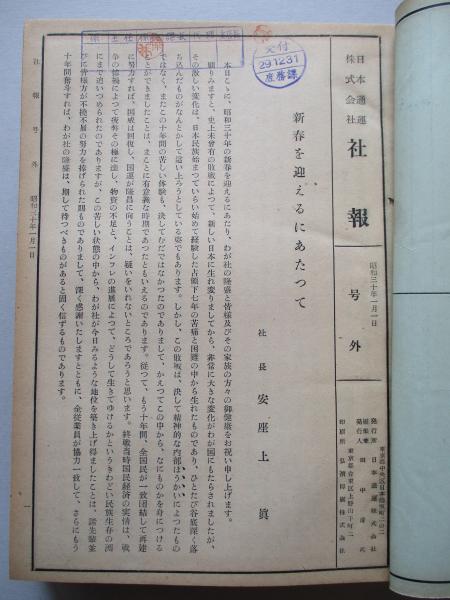 日本通運
株式会社
社報
号外
昭和三十年一月一日
発行所 日本通運株式会社
発行人
印刷所 弘済印刷株式会社
交付
29.12.31
庶務課
新春を迎えるにあたつて
社長 安座上 眞
本日こゝに、昭和三十年の新春を迎えるにあたり、わが社の隆盛と皆様及びその家族の方々の御健康をお祝い申し上げます。
顧りみますと、史上未曽有の敗戦によつて、新しい日本に生れ変りましてから、非常に大きな変化がわが国にもたらされましたが、
その激しい変化は、日本民族始まつていらい始めて経験した占領下七年の苦痛と困難の中から生れたものであり、ひとたび谷底深く落
ち込んだものがなんとかして這い上ろうとしている姿でもあります。しかし、この敗戦は、決して精神的な内部ほうかいによつたもの
ではなく、またこの十年間の苦しい体験も、決してむだではなかつたのでありまして、かえつてこの中から、なにものかを身につける
ことができましたことは、まことに有意義な時期であつたともいえるのであります。従つて、もう十年間、全国民が一致団結して再建
に努力すれば、国威は回復し、国運が隆昌に向うことは、疑いをいれないところであろうと思います。終戦当時国民経済の実情は、戦
争の惨禍によつて疲弊その極に達し、物資の不足と、インフレの進展によつて、どうして生きてゆけるかというきわどい民族生存の淵
にまで追いつめられたのでありますが、この苦しい状態の中から、わが社が今日みるような地位を築き上げ得ましたことは、諸先輩並
びに皆様方が不撓不屈の努力を捧げられた賜ものでありまして、深く感謝いたしますとともに、全従業員が協力一致して、さらにもう
十年間奮斗すれば、わが社の隆盛は、期して待つべきものがあると固く信ずるものであります。
社報号外 昭和三十年一月一日
一